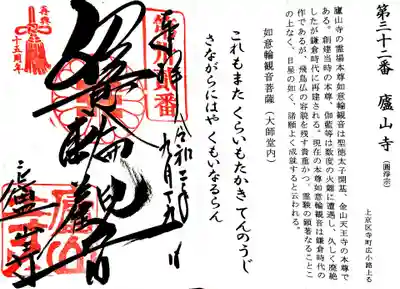 第三十二番 廬山寺 (圓浄宗)
上京区寺町広小路上る
廬山寺の霊場本尊如意輪観音は聖徳太子開基、金山天王寺の本尊で
ある。創建当時の本尊、伽藍等は数度の火難に遭遇し、久しく廃絶
したが鎌倉時代に再建される。現在の本尊如意輪観音は鎌倉時代の
作であるが、飛鳥仏の容貌を残す貴重かつ、霊験の顕著なることこ
の上なく、日星の如く、諸願よく成就すると云われる。
如意輪観音菩薩 (大師堂内)
これもまた くらいもたかき てんのうじ
さながらにはや くもいなるらん
奉拝
令和三年
九月十五日
如意輪観音
廬山寺
再興
十五周年